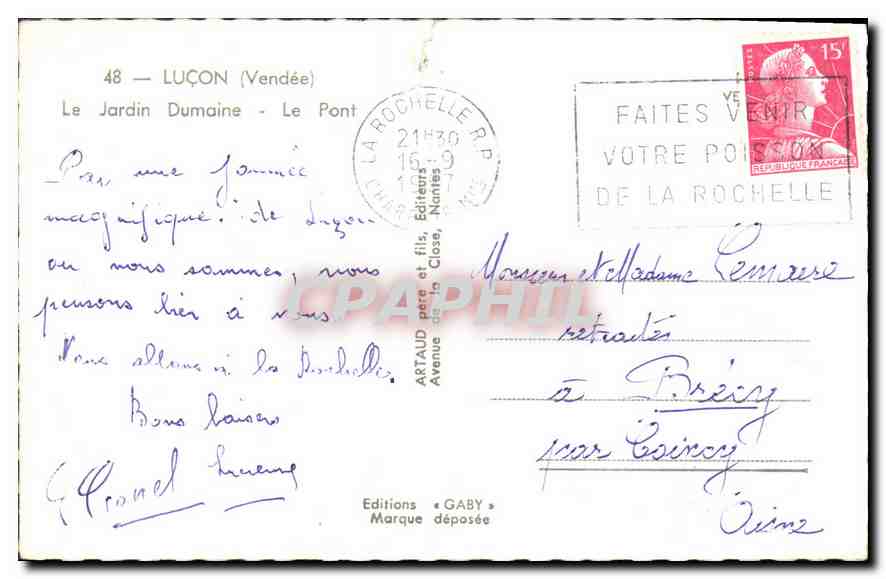 48 — LUÇON (Vendée)
Le Jardin Dumaine - Le Pont
Par une journée
magnifique. de Luçon
ou nous sommes, nous
pensons bien à vous.
Nous allons à la Rochelle.
Bons baisers
Lucienne
ARTAUD père et fils, Editeurs
Avenue de la Close, Nantes
Editions « GABY »
Marque déposée
LA ROCHELLE R.P.
21H30
16 -9
FAITES VENIR
VOTRE POISSON
DE LA ROCHELLE
15F
POSTES
REPUBLIQUE FRANÇAISE
Monsieur et Madame Lemaire
retraités
à Brécy
par Coincy
Aisne
CPAPHIL